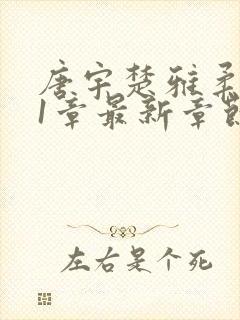 唐宇楚雅柔
1章最新章节
左右是个死